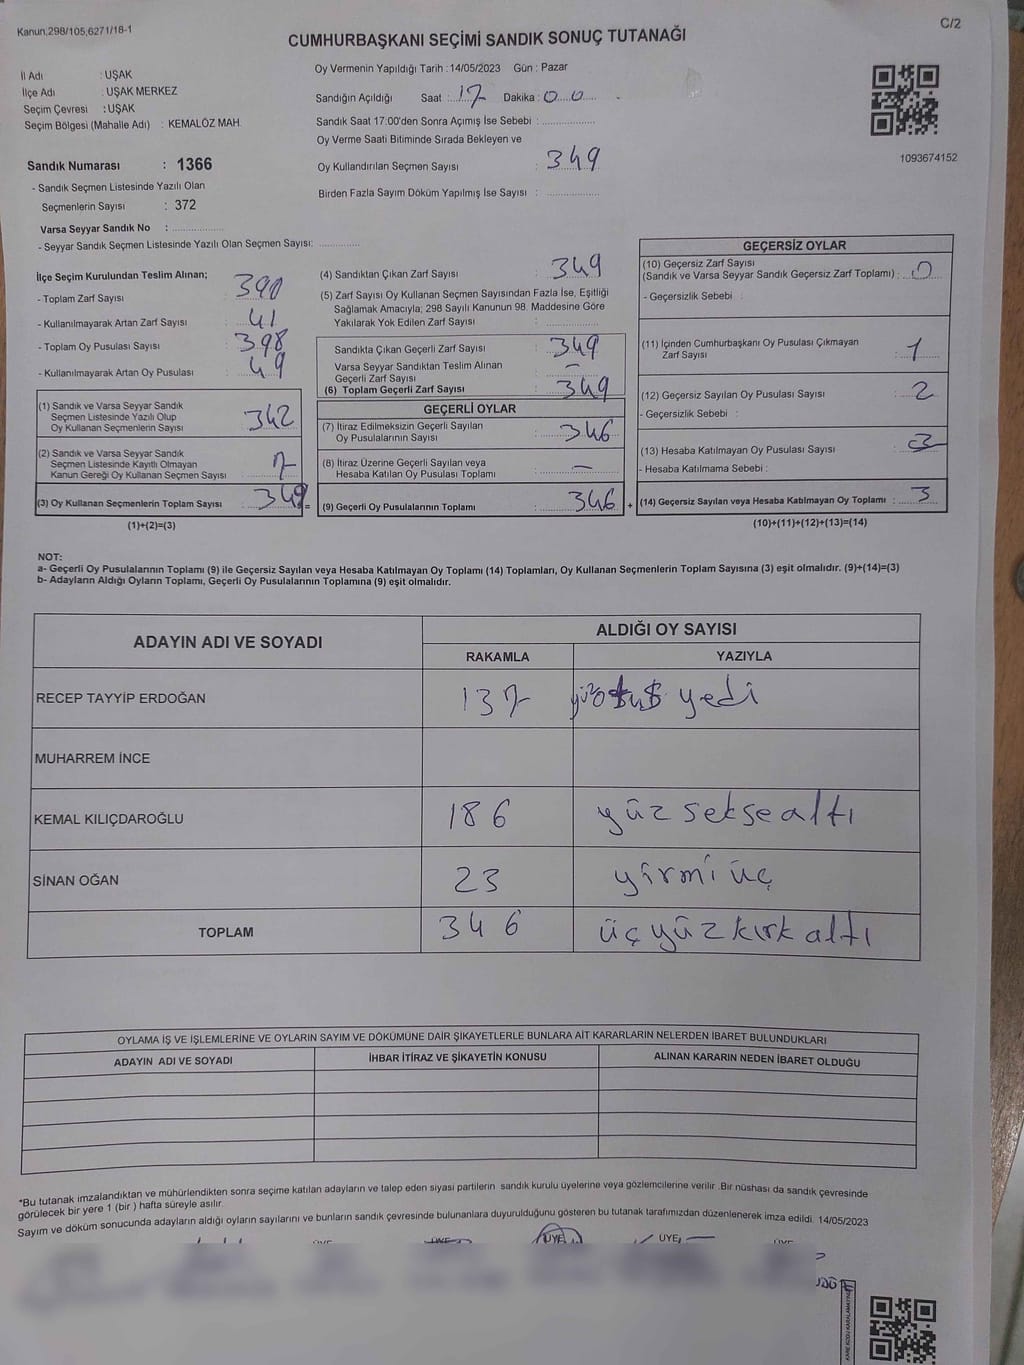 Kanun,298/105,6271/18-1
C/2
CUMHURBAŞKANI SEÇİMİ SANDIK SONUÇ TUTANAĞI
İl Adı : UŞAK
İlçe Adı : UŞAK MERKEZ
Seçim Çevresi : UŞAK
Seçim Bölgesi (Mahalle Adı) : KEMALÖZ MAH.
Sandık Numarası : 1366
- Sandık Seçmen Listesinde Yazılı Olan
Seçmenlerin Sayısı : 372
Varsa Seyyar Sandık No :
- Seyyar Sandık Seçmen Listesinde Yazılı Olan Seçmen Sayısı:
Oy Vermenin Yapıldığı Tarih : 14/05/2023 Gün : Pazar
Sandığın Açıldığı Saat : 17 Dakika : 00
Sandık Saat 17:00'den Sonra Açımış İse Sebebi :
Oy Verme Saati Bitiminde Sırada Bekleyen ve
Oy Kullandırılan Seçmen Sayısı : 349
Birden Fazla Sayım Döküm Yapılmış İse Sayısı :
1093674152
İlçe Seçim Kurulundan Teslim Alınan;
- Toplam Zarf Sayısı : 390
- Kullanılmayarak Artan Zarf Sayısı : 41
- Toplam Oy Pusulası Sayısı : 398
- Kullanılmayarak Artan Oy Pusulası : 49
(1) Sandık ve Varsa Seyyar Sandık
Seçmen Listesinde Yazılı Olup
Oy Kullanan Seçmenlerin Sayısı : 342
(2) Sandık ve Varsa Seyyar Sandık
Seçmen Listesinde Kayıtlı Olmayan
Kanun Gereği Oy Kullanan Seçmen Sayısı : 7
(3) Oy Kullanan Seçmenlerin Toplam Sayısı : 349
=
(1)+(2)=(3)
(4) Sandıktan Çıkan Zarf Sayısı : 349
(5) Zarf Sayısı Oy Kullanan Seçmen Sayısından Fazla İse, Eşitliği
Sağlamak Amacıyla; 298 Sayılı Kanunun 98. Maddesine Göre
Yakılarak Yok Edilen Zarf Sayısı :
Sandıkta Çıkan Geçerli Zarf Sayısı : 349
Varsa Seyyar Sandıktan Teslim Alınan
Geçerli Zarf Sayısı : –
(6) Toplam Geçerli Zarf Sayısı : 349
GEÇERLİ OYLAR
(7) İtiraz Edilmeksizin Geçerli Sayılan
Oy Pusulalarının Sayısı : 346
(8) İtiraz Üzerine Geçerli Sayılan veya
Hesaba Katılan Oy Pusulası Toplamı : –
(9) Geçerli Oy Pusulalarının Toplamı : 346
+
GEÇERSİZ OYLAR
(10) Geçersiz Zarf Sayısı
(Sandık ve Varsa Seyyar Sandık Geçersiz Zarf Toplamı) : 0
- Geçersizlik Sebebi :
(11) İçinden Cumhurbaşkanı Oy Pusulası Çıkmayan
Zarf Sayısı : 1
(12) Geçersiz Sayılan Oy Pusulası Sayısı : 2
- Geçersizlik Sebebi :
(13) Hesaba Katılmayan Oy Pusulası Sayısı :
- Hesaba Katılmama Sebebi :
(14) Geçersiz Sayılan veya Hesaba Katılmayan Oy Toplamı : 3
(10)+(11)+(12)+(13)=(14)
NOT:
a- Geçerli Oy Pusulalarının Toplamı (9) ile Geçersiz Sayılan veya Hesaba Katılmayan Oy Toplamı (14) Toplamları, Oy Kullanan Seçmenlerin Toplam Sayısına (3) eşit olmalıdır. (9)+(14)=(3)
b- Adayların Aldığı Oyların Toplamı, Geçerli Oy Pusulalarının Toplamına (9) eşit olmalıdır.
ADAYIN ADI VE SOYADI ALDIĞI OY SAYISI
RAKAMLA YAZIYLA
RECEP TAYYİP ERDOĞAN 137 yedi
MUHARREM İNCE
KEMAL KILIÇDAROĞLU 186 yüz seksealtı
SİNAN OĞAN 23 yirmi üç
TOPLAM 346 üçyüzkırkaltı
OYLAMA İŞ VE İŞLEMLERİNE VE OYLARIN SAYIM VE DÖKÜMÜNE DAİR ŞİKAYETLERLE BUNLARA AİT KARARLARIN NELERDEN İBARET BULUNDUKLARI
ADAYIN ADI VE SOYADI İHBAR İTİRAZ VE ŞİKAYETİN KONUSU ALINAN KARARIN NEDEN İBARET OLDUĞU
*Bu tutanak imzalandıktan ve mühürlendikten sonra seçime katılan adayların ve talep eden siyasi partilerin sandık kurulu üyelerine veya gözlemcilerine verilir .Bir nüshası da sandık çevresinde
görülecek bir yere 1 (bir ) hafta süreyle asılır.
Sayım ve döküm sonucunda adayların aldığı oyların sayılarını ve bunların sandık çevresinde bulunanlara duyurulduğunu gösteren bu tutanak tarafımızdan düzenlenerek imza edildi. 14/05/2023
ÜYE ÜYE